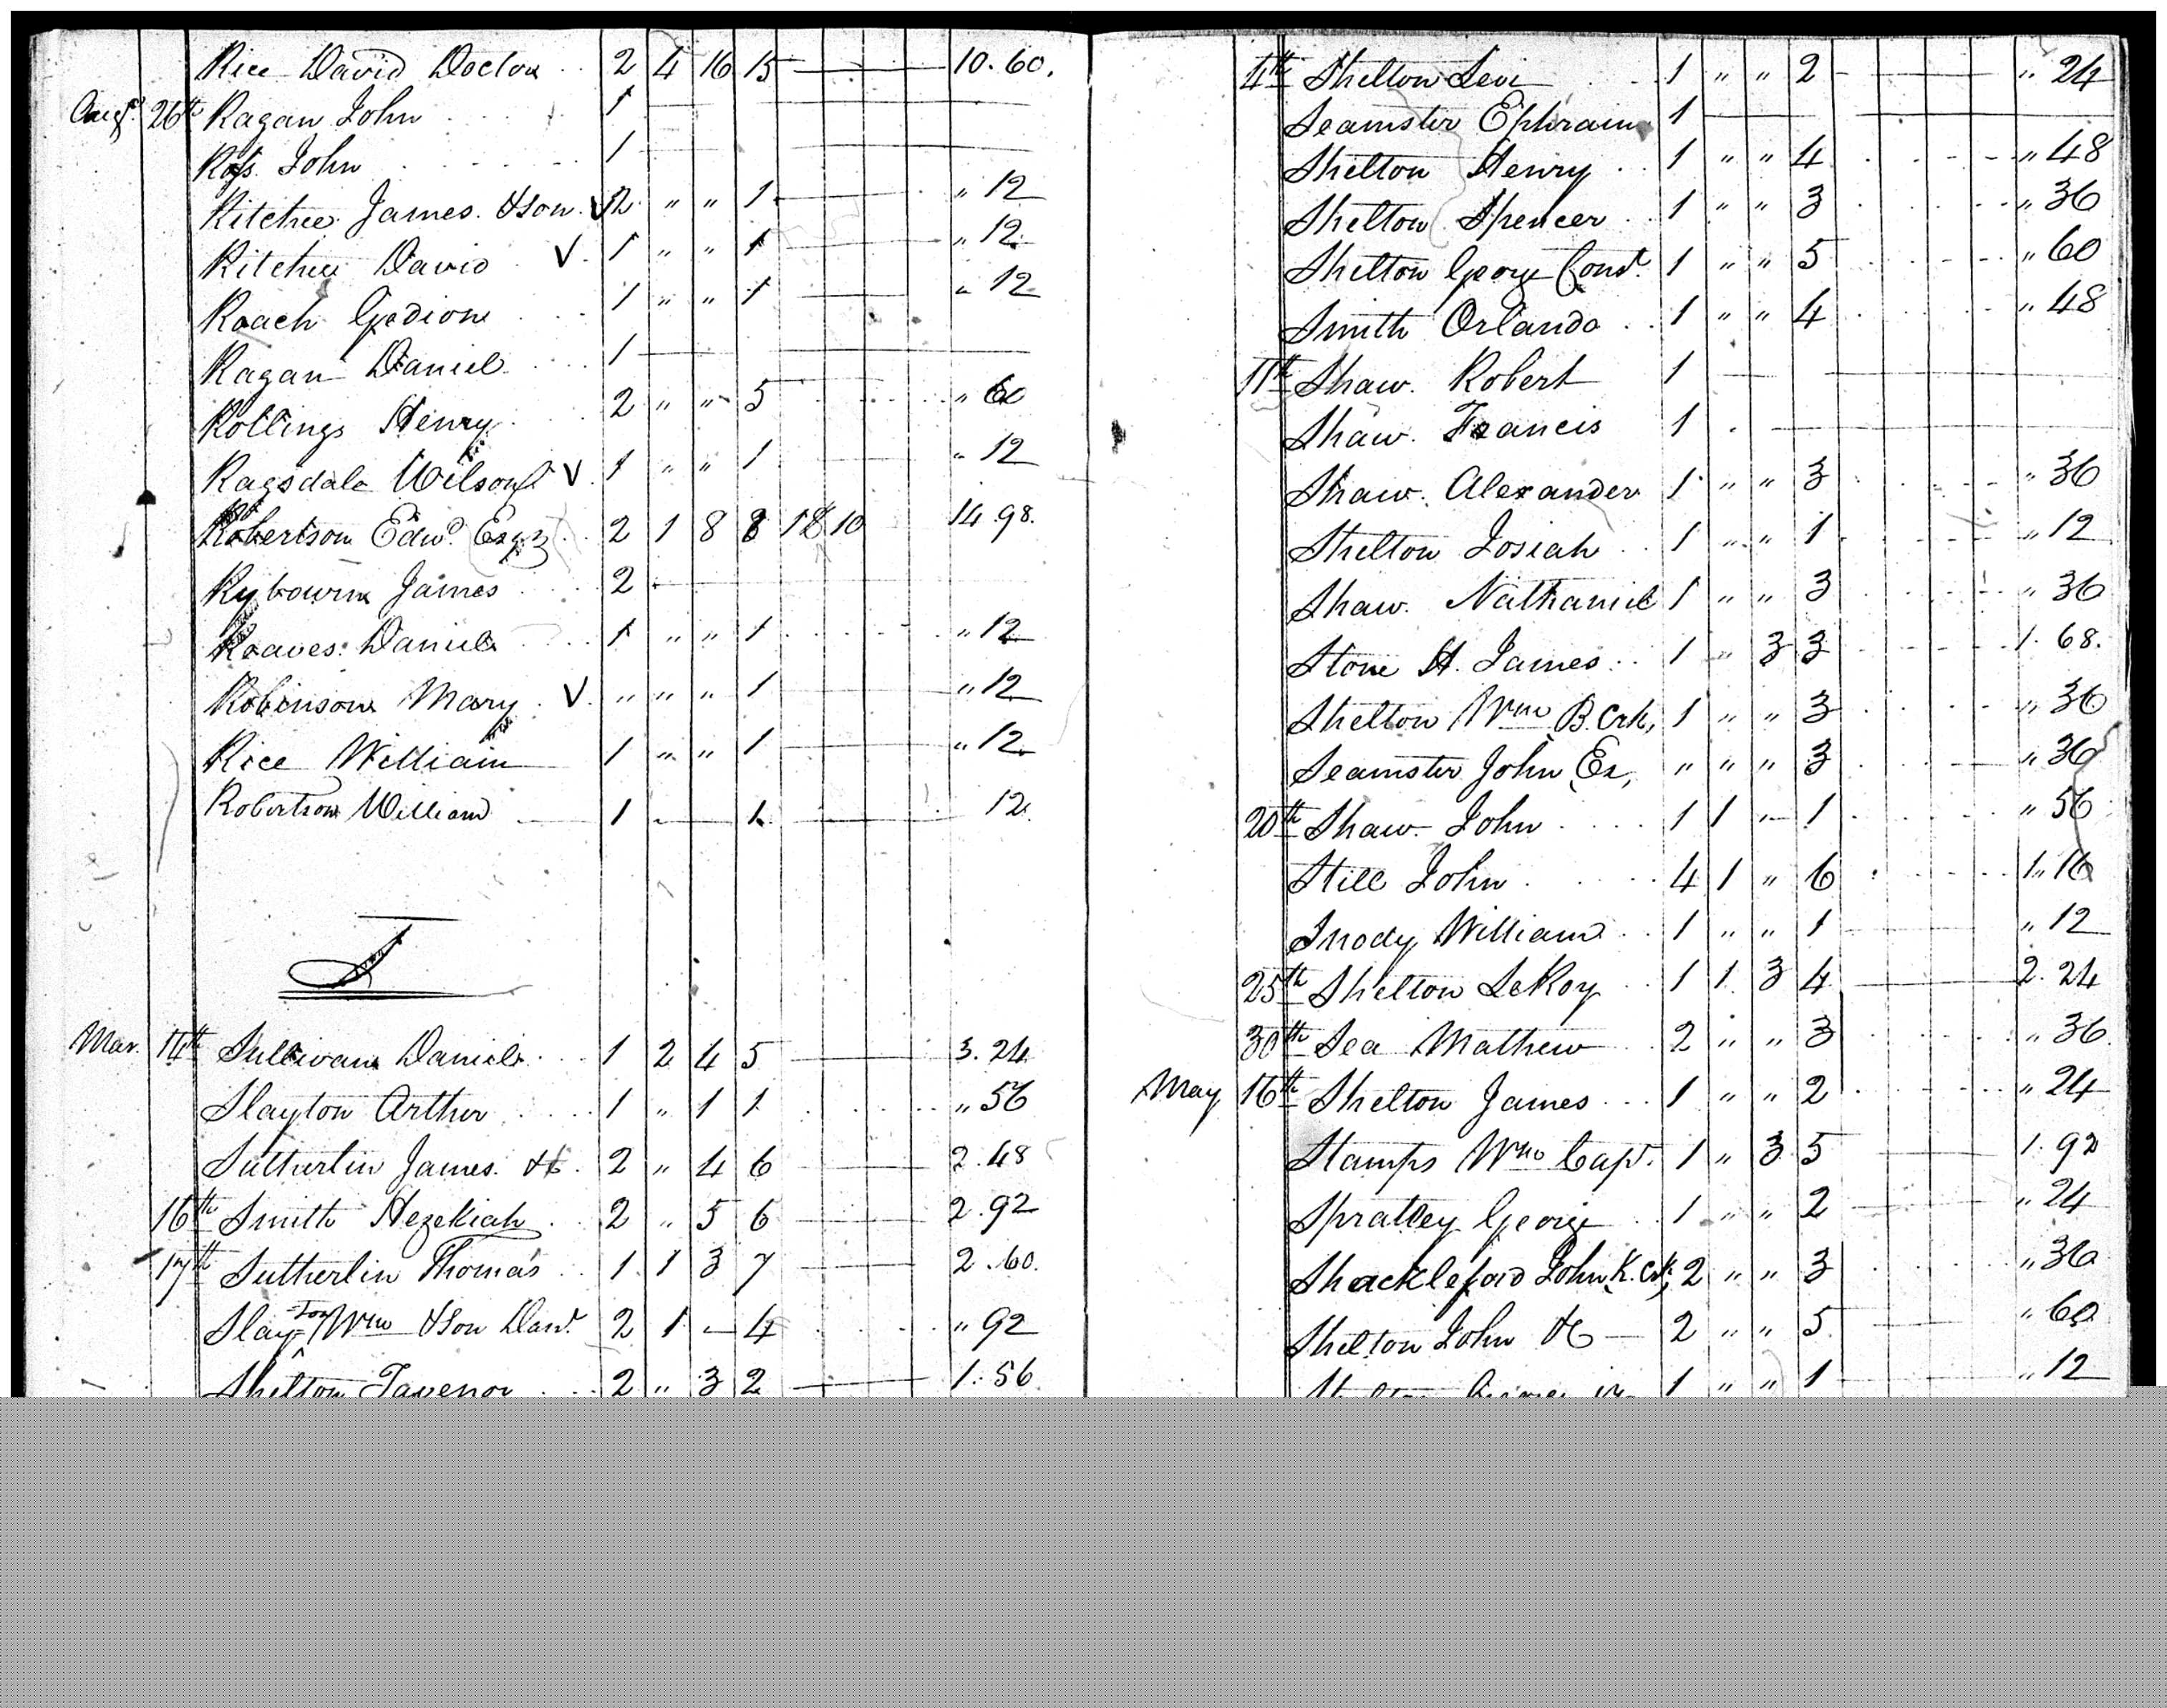 Rice David Doctor 2 4 16 15 10.60.
Augt. 26th Ragan John 1
Ross John 1
Ritchee James &son. V 2 " " 1 " 12
Ritchie David V 1 " " 1 " 12
Roach Gedion 1 " " 1 " 12
Ragan Daniel 1
Rollings Henry 2 " " 5 " 60
Ragsdale Wilson V 1 " " 1 " 12
Robertson Edwd. Esqr 2 1 8 8 10 14.98.
Rybourn James 2
Reaves Daniel 1 " " 1 " 12
Robinson Mary V " " " 1 " 12
Rice William 1 " " 1 " 12
Robertson William 1 1 12
S
Mar. 14th Sullivan Daniel 1 2 4 5 3.24
Slayton Arthur 1 " 1 1 " 56
Sutherlin James &c. 2 " 4 6 2.48
16th Smith Hezekiah 2 " 5 6 2.92
17th Sutherlin Thomas 1 1 3 7 2.60.
Slayton Wm &Son Danl. 2 1 - 4 " 92
Shelton Tavenor 2 " 3 2 1.56
4th Shelton Levi 1 " " 2 " 24
Seamster Ephraim 1
Shelton Henry 1 " " 4 " 48
Shelton Spencer 1 " " 3 " 36
Shelton George Const. 1 " " 5 " 60
Smith Orlando 1 " " 4 " 48
11th Shaw. Robert 1
Shaw. Francis 1
Shaw. Alexander 1 " " 3 " 36
Shelton Josiah 1 " " 1 " 12
Shaw. Nathaniel 1 " " 3 " 36
Stone H. James 1 " 3 3 1.68.
Shelton Wm B. Crk, 1 " " 3 " 36
Seamster John Ex, " " " 3 " 36
20th Shaw John 1 1 - 1 " 56
Still John 4 1 " 6 1.16
Snody William 1 " " 1 " 12
25th Shelton LeRoy 1 1 3 4 2.24
30th Sea Mathew 2 " " 3 " 36
May 16th Shelton James 1 " " 2 " 24
Stamps Wm Capt. 1 " 3 5 1.92
Spratley George 1 " " 2 " 24
Shackleford John K. Crk; 2 " " 3 " 36
Shelton John &c 2 " " 5 " 60
1 " " 1 " 12